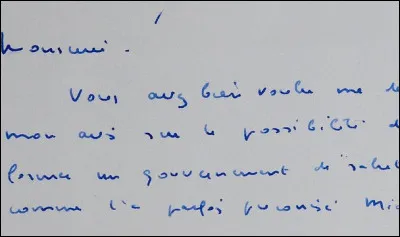 Monsieur.
Vous avez bien voulu me de
mon avis sur la possibilité d
former un gouvernement de salut
comme l'a parfois préconisé